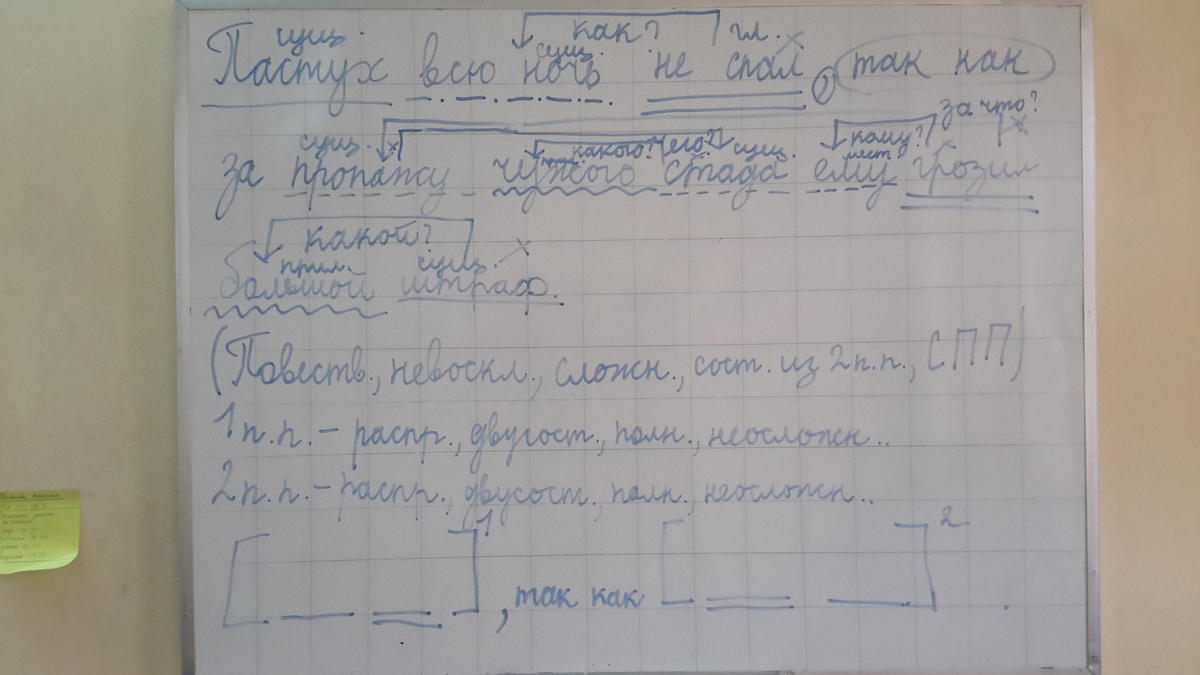 как?
сущ. сущ. гл.
Пастух всю ночь не спал, так как
за что?
сущ. какого? чего? сущ. кому? мест.
за пропажу чужого стада ему грозил
какой?
прил. сущ.
большой штраф.
(Повеств., невоскл., сложн., сост. из 2 п.п., СПП)
1 п.п. – распр., двусост., полн., неосложн..
2 п.п. – распр., двусост., полн., неосложн..
[ ]1, так как [ ]2.